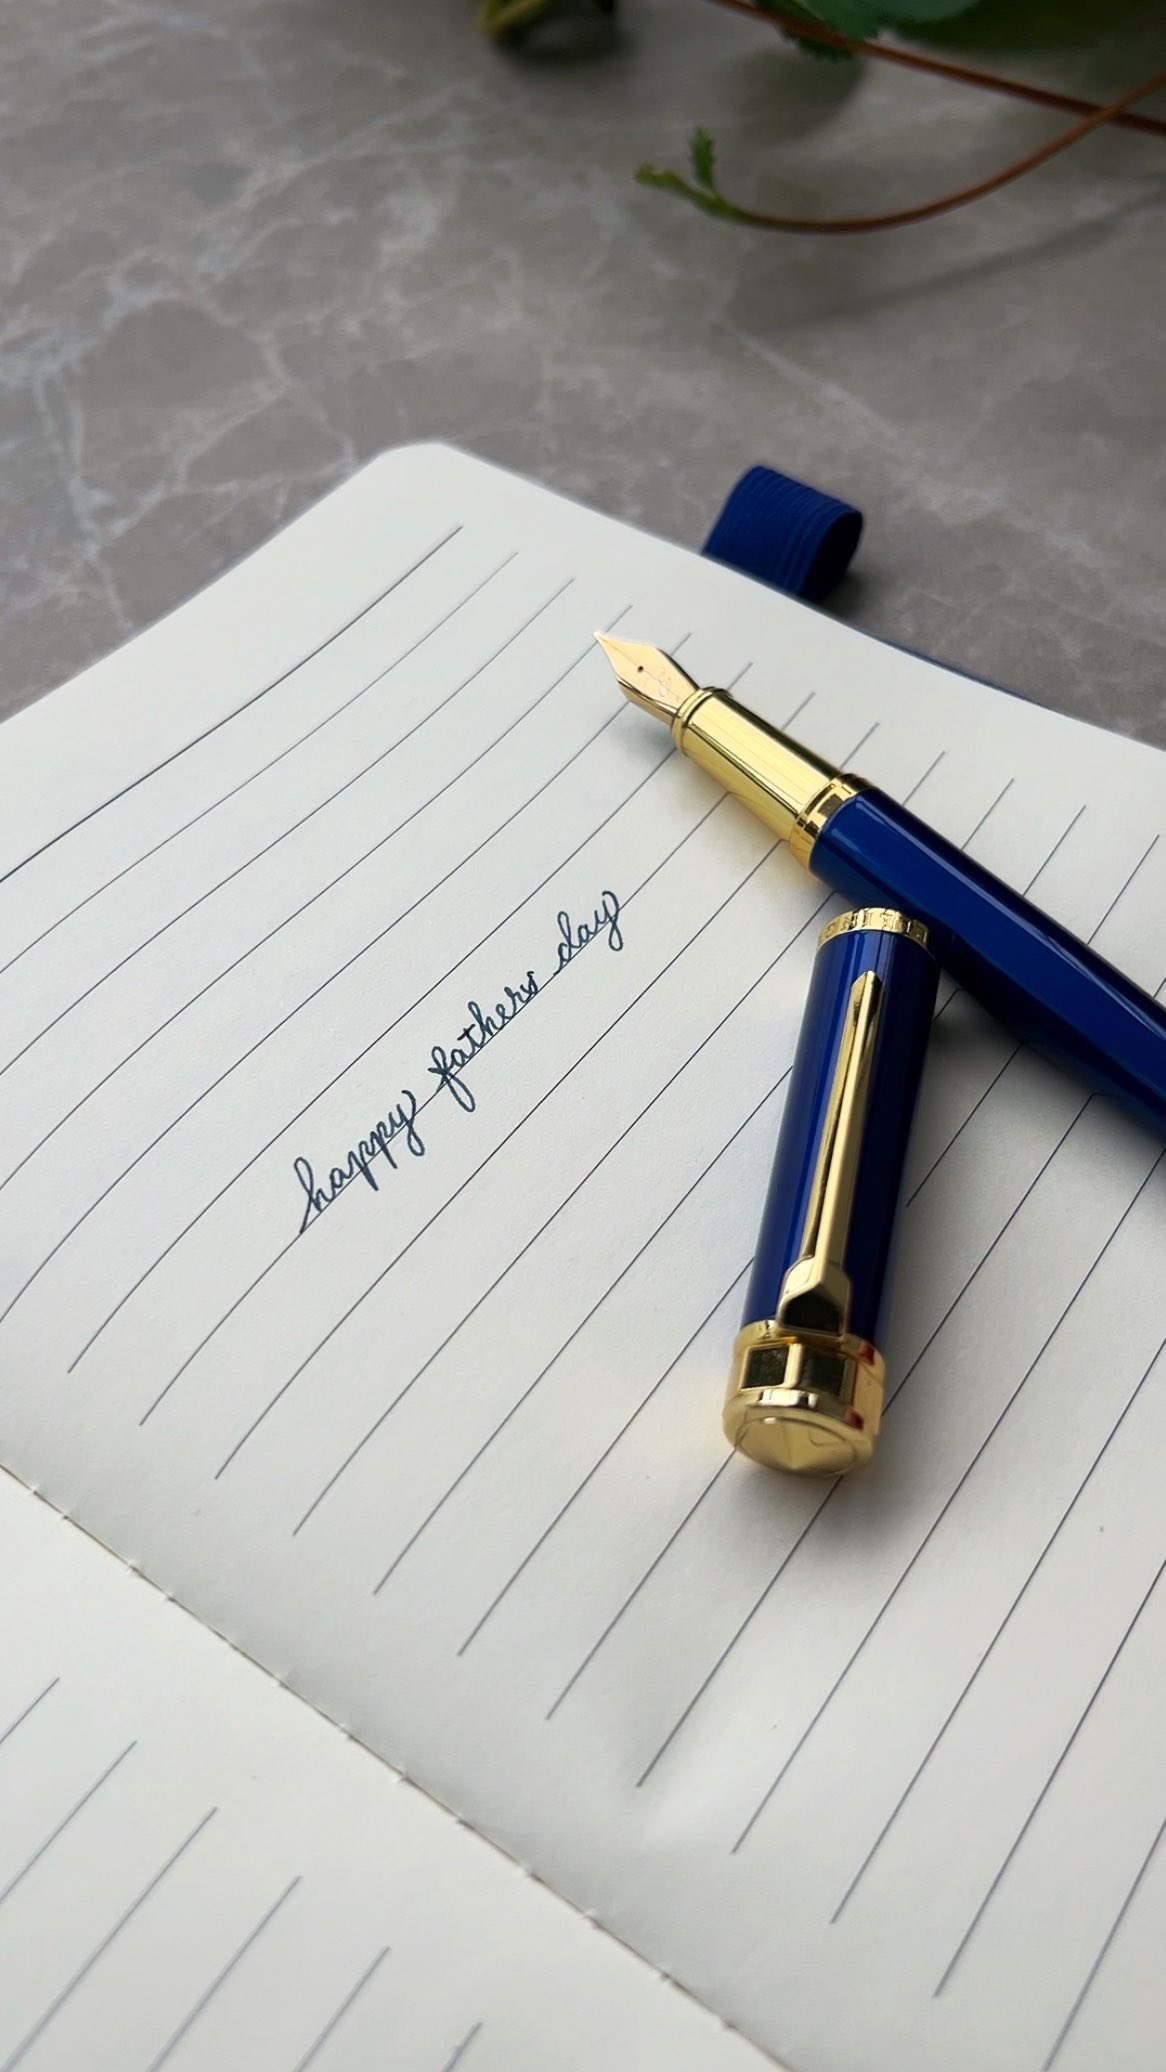 happy fathers day